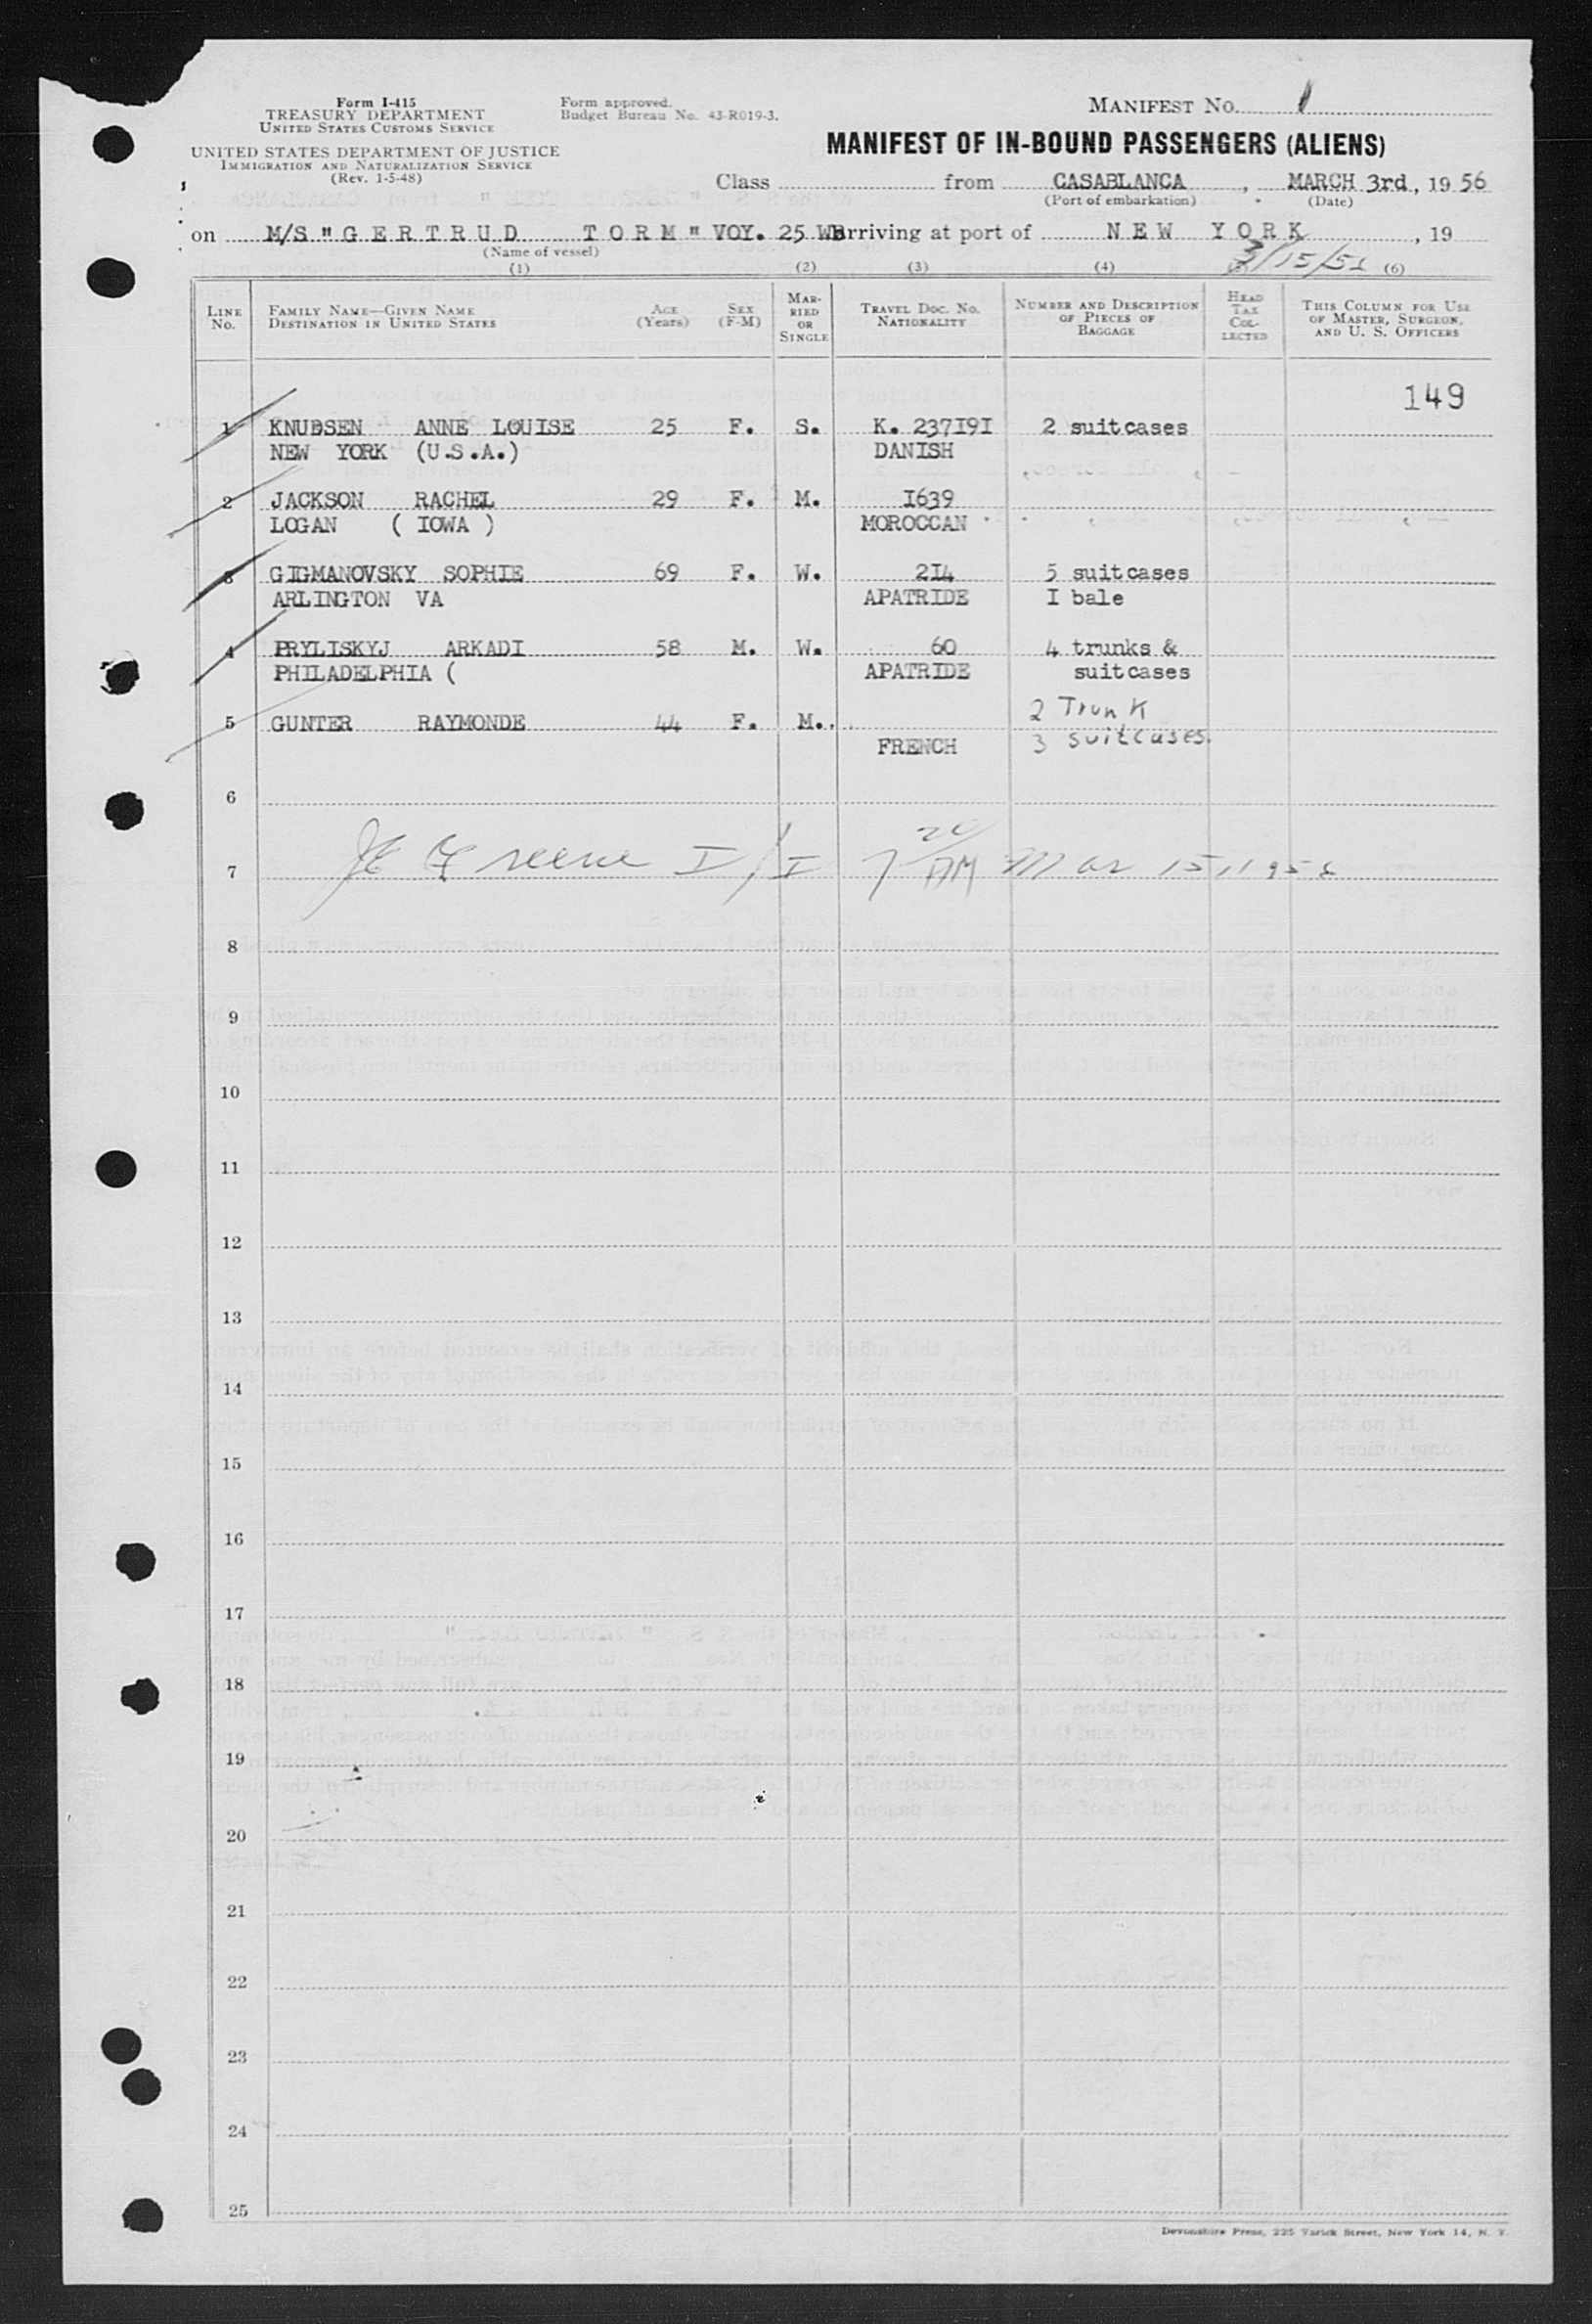 Form I-415
TREASURY DEPARTMENT
UNITED STATES CUSTOMS SERVICE
UNITED STATES DEPARTMENT OF JUSTICE
IMMIGRATION AND NATURALIZATION SERVICE
(Rev. 1-5-48)
Form approved.
Budget Bureau No. 43-R019-3.
MANIFEST NO. 1
MANIFEST OF IN-BOUND PASSENGERS (ALIENS)
Class from CASABLANCA, MARCH 3rd, 19 56
(Port of embarkation) (Date)
on M/S "GERTRUD TORM" VOY. 25 WB arriving at port of NEW YORK, 19
(Name of vessel)
3/15/56
(1) (2) (3) (4) (6)
LINE No. FAMILY NAME—GIVEN NAME DESTINATION IN UNITED STATES AGE (Years) SEX (F-M) MARRIED OR SINGLE TRAVEL DOC. NO. NATIONALITY NUMBER AND DESCRIPTION OF PIECES OF BAGGAGE HEAD TAX COLLECTED THIS COLUMN FOR USE OF MASTER, SURGEON, AND U. S. OFFICERS
149
1 KNUDSEN ANNE LOUISE 25 F. S. K. 237I9I 2 suitcases
NEW YORK (U.S.A.) DANISH
2 JACKSON RACHEL 29 F. M. I639
LOGAN ( IOWA ) MOROCCAN
3 GIGMANOVSKY SOPHIE 69 F. W. 2I4 5 suitcases
ARLINGTON VA APATRIDE I bale
4 PRYLISKYJ ARKADI 58 M. W. 60 4 trunks &
PHILADELPHIA ( APATRIDE suitcases
2 Trunk
5 GUNTER RAYMONDE 44 F. M.
FRENCH 3 suitcases.
6
7 JE Greene I/I 7 20/AM Mar 15, 1956
8
9
10
11
12
13
14
15
16
17
18
19
20
21
22
23
24
25
Devonshire Press, 225 Varick Street, New York 14, N. Y.